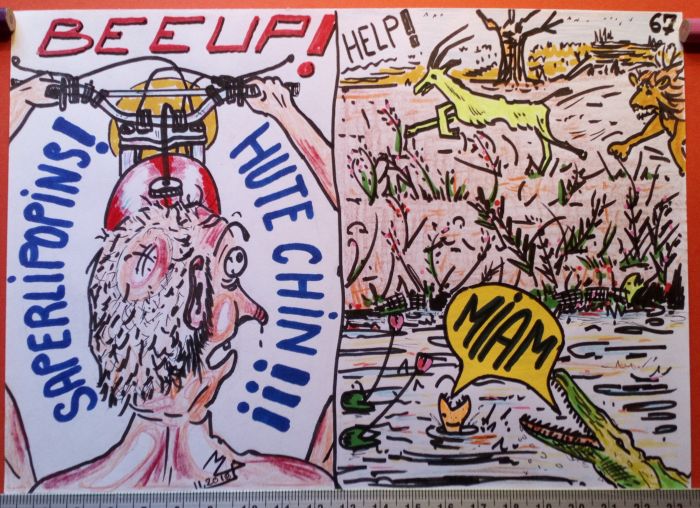 BEEUP!
SAPERLIPOPINS!
HUTE CHIN¡¡¡
11.2018
HELP!
67
MIAM